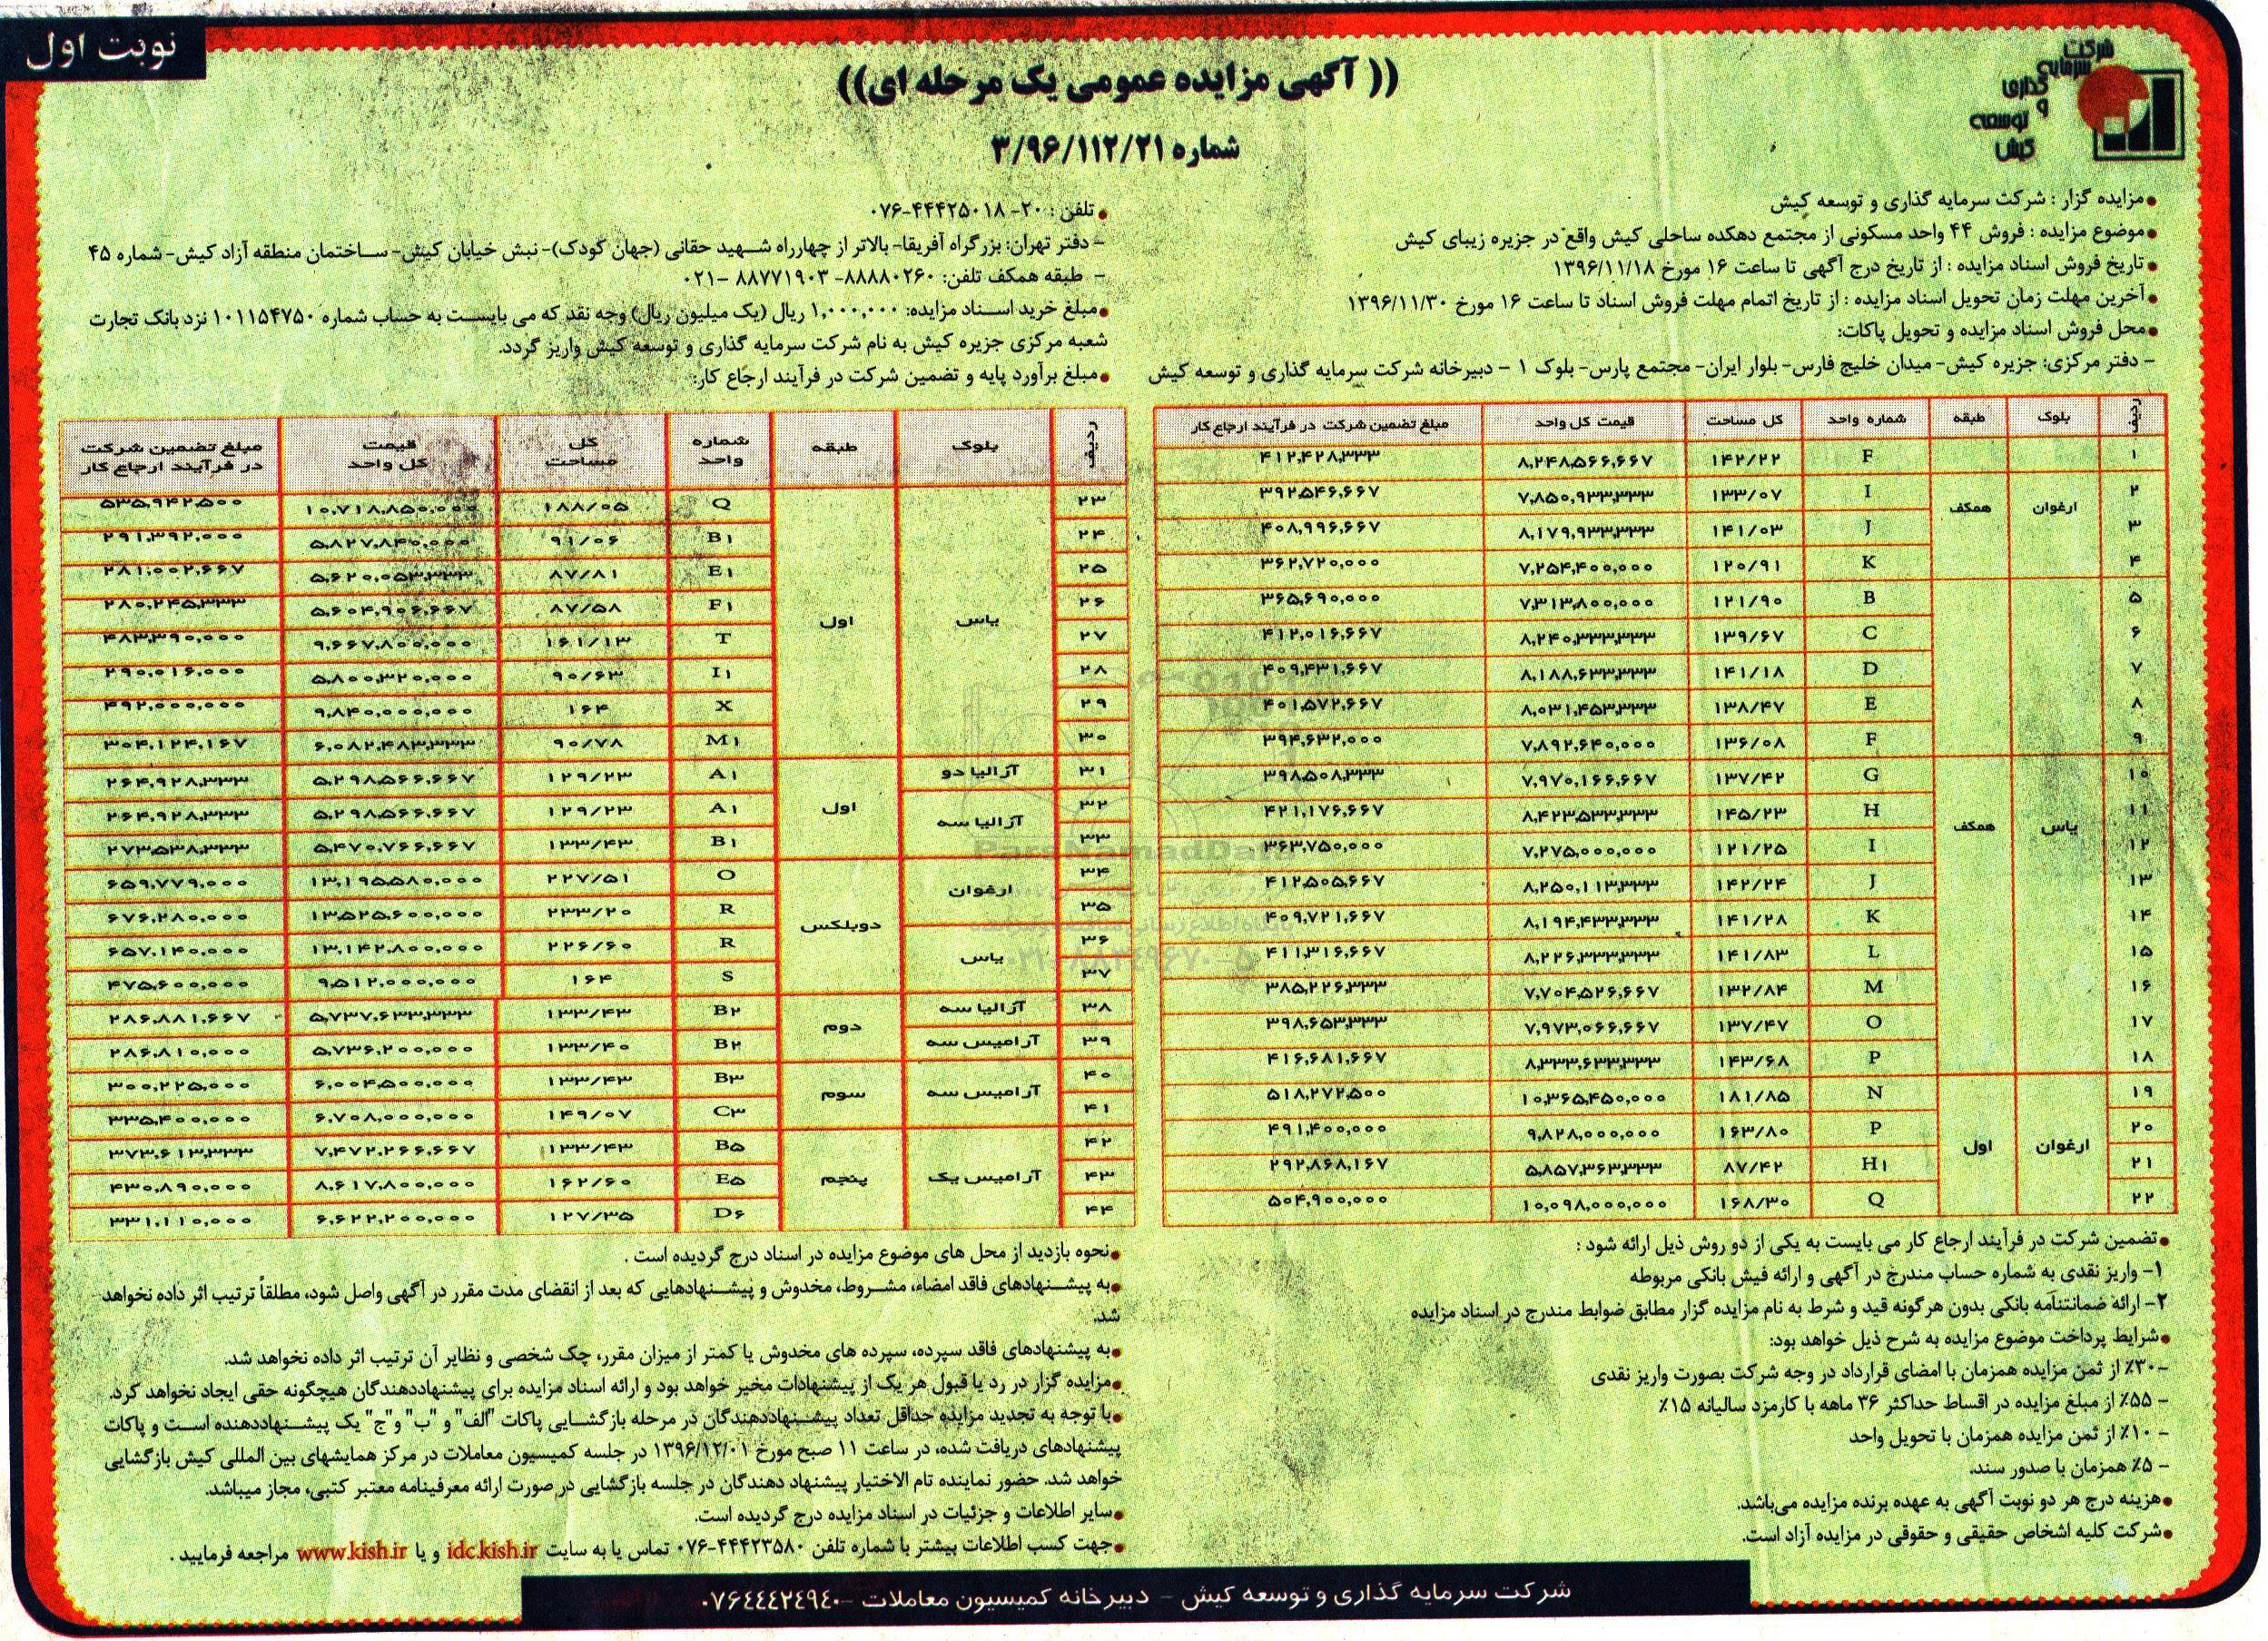 نوبت اول
شرکت
سرمایه
گذاری
و
توسعه
کیش
(( آگهی مزایده عمومی یک مرحله ای))
شماره ۳/۹۶/۱۱۲/۲۱
●مزایده گزار : شرکت سرمایه گذاری و توسعه کیش
●موضوع مزایده : فروش ۴۴ واحد مسکونی از مجتمع دهکده ساحلی کیش واقع در جزیره زیبای کیش
●تاریخ فروش اسناد مزایده : از تاریخ درج آگهی تا ساعت ۱۶ مورخ ۱۳۹۶/۱۱/۱۸
●آخرین مهلت زمان تحویل اسناد مزایده : از تاریخ اتمام مهلت فروش اسناد تا ساعت ۱۶ مورخ ۱۳۹۶/۱۱/۳۰
●محل فروش اسناد مزایده و تحویل پاکات:
- دفتر مرکزی: جزیره کیش- میدان خلیج فارس- بلوار ایران- مجتمع پارس- بلوک ۱ - دبیرخانه شرکت سرمایه گذاری و توسعه کیش
●تلفن : ۲۰- ۴۴۴۲۵۰۱۸-۰۷۶
- دفتر تهران: بزرگراه آفریقا- بالاتر از چهارراه شهید حقانی (جهان کودک)- نبش خیابان کیش- ساختمان منطقه آزاد کیش- شماره ۴۵
- طبقه همکف تلفن: ۸۸۸۸۰۲۶۰- ۸۸۷۷۱۹۰۳ -۰۲۱
●مبلغ خرید اسناد مزایده: ۱,۰۰۰,۰۰۰ ریال (یک میلیون ریال) وجه نقد که می بایست به حساب شماره ۱۰۱۱۵۴۷۵۰ نزد بانک تجارت
شعبه مرکزی جزیره کیش به نام شرکت سرمایه گذاری و توسعه کیش واریز گردد.
●مبلغ برآورد پایه و تضمین شرکت در فرآیند ارجاع کار:
ردیف بلوک طبقه شماره واحد کل مساحت قیمت کل واحد مبلغ تضمین شرکت در فرآیند ارجاع کار
۱ F ۱۴۲/۲۲ ۸,۲۴۸,۵۶۶,۶۶۷ ۴۱۲,۴۲۸,۳۳۳
۲ ارغوان همکف I ۱۳۳/۰۷ ۷,۸۵۰,۹۳۳,۳۳۳ ۳۹۲,۵۴۶,۶۶۷
۳ J ۱۴۱/۰۳ ۸,۱۷۹,۹۳۳,۳۳۳ ۴۰۸,۹۹۶,۶۶۷
۴ K ۱۲۰/۹۱ ۷,۲۵۴,۴۰۰,۰۰۰ ۳۶۲,۷۲۰,۰۰۰
۵ B ۱۲۱/۹۰ ۷,۳۱۳,۸۰۰,۰۰۰ ۳۶۵,۶۹۰,۰۰۰
۶ C ۱۳۹/۶۷ ۸,۲۴۰,۳۳۳,۳۳۳ ۴۱۲,۰۱۶,۶۶۷
۷ D ۱۴۱/۱۸ ۸,۱۸۸,۶۳۳,۳۳۳ ۴۰۹,۴۳۱,۶۶۷
۸ E ۱۳۸/۴۷ ۸,۰۳۱,۴۵۳,۳۳۳ ۴۰۱,۵۷۲,۶۶۷
۹ F ۱۳۶/۰۸ ۷,۸۹۲,۶۴۰,۰۰۰ ۳۹۴,۶۳۲,۰۰۰
۱۰ G ۱۳۷/۴۲ ۷,۹۷۰,۱۶۶,۶۶۷ ۳۹۸,۵۰۸,۳۳۳
۱۱ یاس همکف H ۱۴۵/۲۳ ۸,۴۲۳,۵۳۳,۳۳۳ ۴۲۱,۱۷۶,۶۶۷
۱۲ I ۱۲۱/۲۵ ۷,۲۷۵,۰۰۰,۰۰۰ ۳۶۳,۷۵۰,۰۰۰
۱۳ J ۱۴۲/۲۴ ۸,۲۵۰,۱۱۳,۳۳۳ ۴۱۲,۵۰۵,۶۶۷
۱۴ K ۱۴۱/۲۸ ۸,۱۹۴,۴۳۳,۳۳۳ ۴۰۹,۷۲۱,۶۶۷
۱۵ L ۱۴۱/۸۳ ۸,۲۲۶,۳۳۳,۳۳۳ ۴۱۱,۳۱۶,۶۶۷
۱۶ M ۱۳۲/۸۴ ۷,۷۰۴,۵۲۶,۶۶۷ ۳۸۵,۲۲۶,۳۳۳
۱۷ O ۱۳۷/۴۷ ۷,۹۷۳,۰۶۶,۶۶۷ ۳۹۸,۶۵۳,۳۳۳
۱۸ P ۱۴۳/۶۸ ۸,۳۳۳,۶۳۳,۳۳۳ ۴۱۶,۶۸۱,۶۶۷
۱۹ N ۱۸۱/۸۵ ۱۰,۳۶۵,۴۵۰,۰۰۰ ۵۱۸,۲۷۲,۵۰۰
۲۰ ارغوان اول P ۱۶۳/۸۰ ۹,۸۲۸,۰۰۰,۰۰۰ ۴۹۱,۴۰۰,۰۰۰
۲۱ H۱ ۸۷/۴۲ ۵,۸۵۷,۳۶۳,۳۳۳ ۲۹۲,۸۶۸,۱۶۷
۲۲ Q ۱۶۸/۳۰ ۱۰,۰۹۸,۰۰۰,۰۰۰ ۵۰۴,۹۰۰,۰۰۰
ردیف بلوک طبقه شماره واحد کل مساحت قیمت کل واحد مبلغ تضمین شرکت در فرآیند ارجاع کار
۲۳ Q ۱۸۸/۰۵ ۱۰,۷۱۸,۸۵۰,۰۰۰ ۵۳۵,۹۴۲,۵۰۰
۲۴ B۱ ۹۱/۰۶ ۵,۸۲۷,۸۴۰,۰۰۰ ۲۹۱,۳۹۲,۰۰۰
۲۵ E۱ ۸۷/۸۱ ۵,۶۲۰,۰۵۳,۳۳۳ ۲۸۱,۰۰۲,۶۶۷
۲۶ یاس اول F۱ ۸۷/۵۸ ۵,۶۰۴,۹۰۶,۶۶۷ ۲۸۰,۲۴۵,۳۳۳
۲۷ T ۱۶۱/۱۳ ۹,۶۶۷,۸۰۰,۰۰۰ ۴۸۳,۳۹۰,۰۰۰
۲۸ I۱ ۹۰/۶۳ ۵,۸۰۰,۳۲۰,۰۰۰ ۲۹۰,۰۱۶,۰۰۰
۲۹ X ۱۶۴ ۹,۸۴۰,۰۰۰,۰۰۰ ۴۹۲,۰۰۰,۰۰۰
۳۰ M۱ ۹۰/۷۸ ۶,۰۸۲,۴۸۳,۳۳۳ ۳۰۴,۱۲۴,۱۶۷
۳۱ آزالیا دو A۱ ۱۲۹/۲۳ ۵,۲۹۸,۵۶۶,۶۶۷ ۲۶۴,۹۲۸,۳۳۳
۳۲ آزالیا سه اول A۱ ۱۲۹/۲۳ ۵,۲۹۸,۵۶۶,۶۶۷ ۲۶۴,۹۲۸,۳۳۳
۳۳ B۱ ۱۳۳/۴۳ ۵,۴۷۰,۷۶۶,۶۶۷ ۲۷۳,۵۳۸,۳۳۳
۳۴ ارغوان O ۲۲۷/۵۱ ۱۳,۱۹۵,۵۸۰,۰۰۰ ۶۵۹,۷۷۹,۰۰۰
۳۵ دوبلکس R ۲۳۳/۲۰ ۱۳,۵۲۵,۶۰۰,۰۰۰ ۶۷۶,۲۸۰,۰۰۰
۳۶ یاس R ۲۲۶/۶۰ ۱۳,۱۴۲,۸۰۰,۰۰۰ ۶۵۷,۱۴۰,۰۰۰
۳۷ S ۱۶۴ ۹,۵۱۲,۰۰۰,۰۰۰ ۴۷۵,۶۰۰,۰۰۰
۳۸ آزالیا سه دوم B۲ ۱۳۳/۴۳ ۵,۷۳۷,۶۳۳,۳۳۳ ۲۸۶,۸۸۱,۶۶۷
۳۹ آرامیس سه B۲ ۱۳۳/۴۰ ۵,۷۳۶,۲۰۰,۰۰۰ ۲۸۶,۸۱۰,۰۰۰
۴۰ آرامیس سه سوم B۳ ۱۳۳/۴۳ ۶,۰۰۴,۵۰۰,۰۰۰ ۳۰۰,۲۲۵,۰۰۰
۴۱ C۳ ۱۴۹/۰۷ ۶,۷۰۸,۰۰۰,۰۰۰ ۳۳۵,۴۰۰,۰۰۰
۴۲ B۵ ۱۳۳/۴۳ ۷,۴۷۲,۲۶۶,۶۶۷ ۳۷۳,۶۱۳,۳۳۳
۴۳ آرامیس یک پنجم E۵ ۱۶۲/۶۰ ۸,۶۱۷,۸۰۰,۰۰۰ ۴۳۰,۸۹۰,۰۰۰
۴۴ D۶ ۱۲۷/۳۵ ۶,۶۲۲,۲۰۰,۰۰۰ ۳۳۱,۱۱۰,۰۰۰
ParsNamadData
●تضمین شرکت در فرآیند ارجاع کار می بایست به یکی از دو روش ذیل ارائه شود :
۱- واریز نقدی به شماره حساب مندرج در آگهی و ارائه فیش بانکی مربوطه
۲- ارائه ضمانتنامه بانکی بدون هرگونه قید و شرط به نام مزایده گزار مطابق ضوابط مندرج در اسناد مزایده
●شرایط پرداخت موضوع مزایده به شرح ذیل خواهد بود:
-۳۰٪ از ثمن مزایده همزمان با امضای قرارداد در وجه شرکت بصورت واریز نقدی
- ۵۵٪ از مبلغ مزایده در اقساط حداکثر ۳۶ ماهه با کارمزد سالیانه ۱۵٪
- ۱۰٪ از ثمن مزایده همزمان با تحویل واحد
- ۵٪ همزمان با صدور سند.
●هزینه درج هر دو نوبت آگهی به عهده برنده مزایده می‌باشد.
●شرکت کلیه اشخاص حقیقی و حقوقی در مزایده آزاد است.
●نحوه بازدید از محل های موضوع مزایده در اسناد درج گردیده است .
●به پیشنهادهای فاقد امضاء، مشروط، مخدوش و پیشنهادهایی که بعد از انقضای مدت مقرر در آگهی واصل شود، مطلقاً ترتیب اثر داده نخواهد
شد.
●به پیشنهادهای فاقد سپرده، سپرده های مخدوش یا کمتر از میزان مقرر، چک شخصی و نظایر آن ترتیب اثر داده نخواهد شد.
●مزایده گزار در رد یا قبول هر یک از پیشنهادات مخیر خواهد بود و ارائه اسناد مزایده برای پیشنهاددهندگان هیچگونه حقی ایجاد نخواهد کرد.
●با توجه به تجدید مزایده حداقل تعداد پیشنهاددهندگان در مرحله بازگشایی پاکات "الف" و "ب" و"ج" یک پیشنهاددهنده است و پاکات
پیشنهادهای دریافت شده، در ساعت ۱۱ صبح مورخ ۱۳۹۶/۱۲/۰۱ در جلسه کمیسیون معاملات در مرکز همایشهای بین المللی کیش بازگشایی
خواهد شد. حضور نماینده تام الاختیار پیشنهاد دهندگان در جلسه بازگشایی در صورت ارائه معرفینامه معتبر کتبی، مجاز میباشد.
●سایر اطلاعات و جزئیات در اسناد مزایده درج گردیده است.
●جهت کسب اطلاعات بیشتر با شماره تلفن ۴۴۴۲۳۵۸۰-۰۷۶ تماس یا به سایت idc.kish.ir و یا www.kish.ir مراجعه فرمایید .
شرکت سرمایه گذاری و توسعه کیش - دبیرخانه کمیسیون معاملات -۰۷۶۴۴۴۲۴۹۴۰